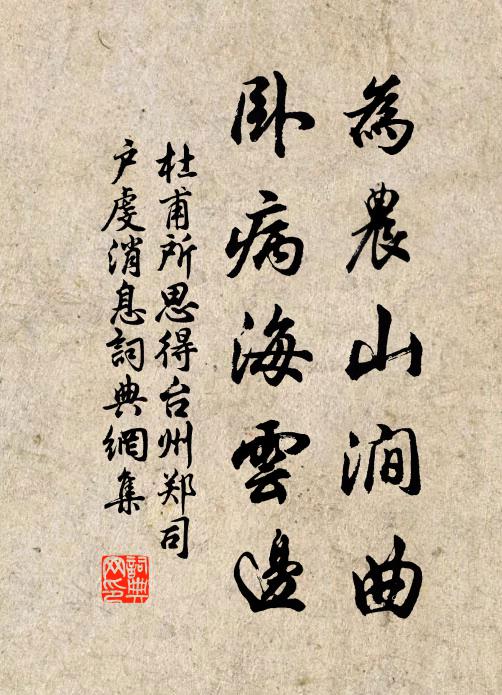 為農山澗曲
卧病海雲邊
杜甫所思得台州郑司
户虔消息詞典網集
詞典
网印